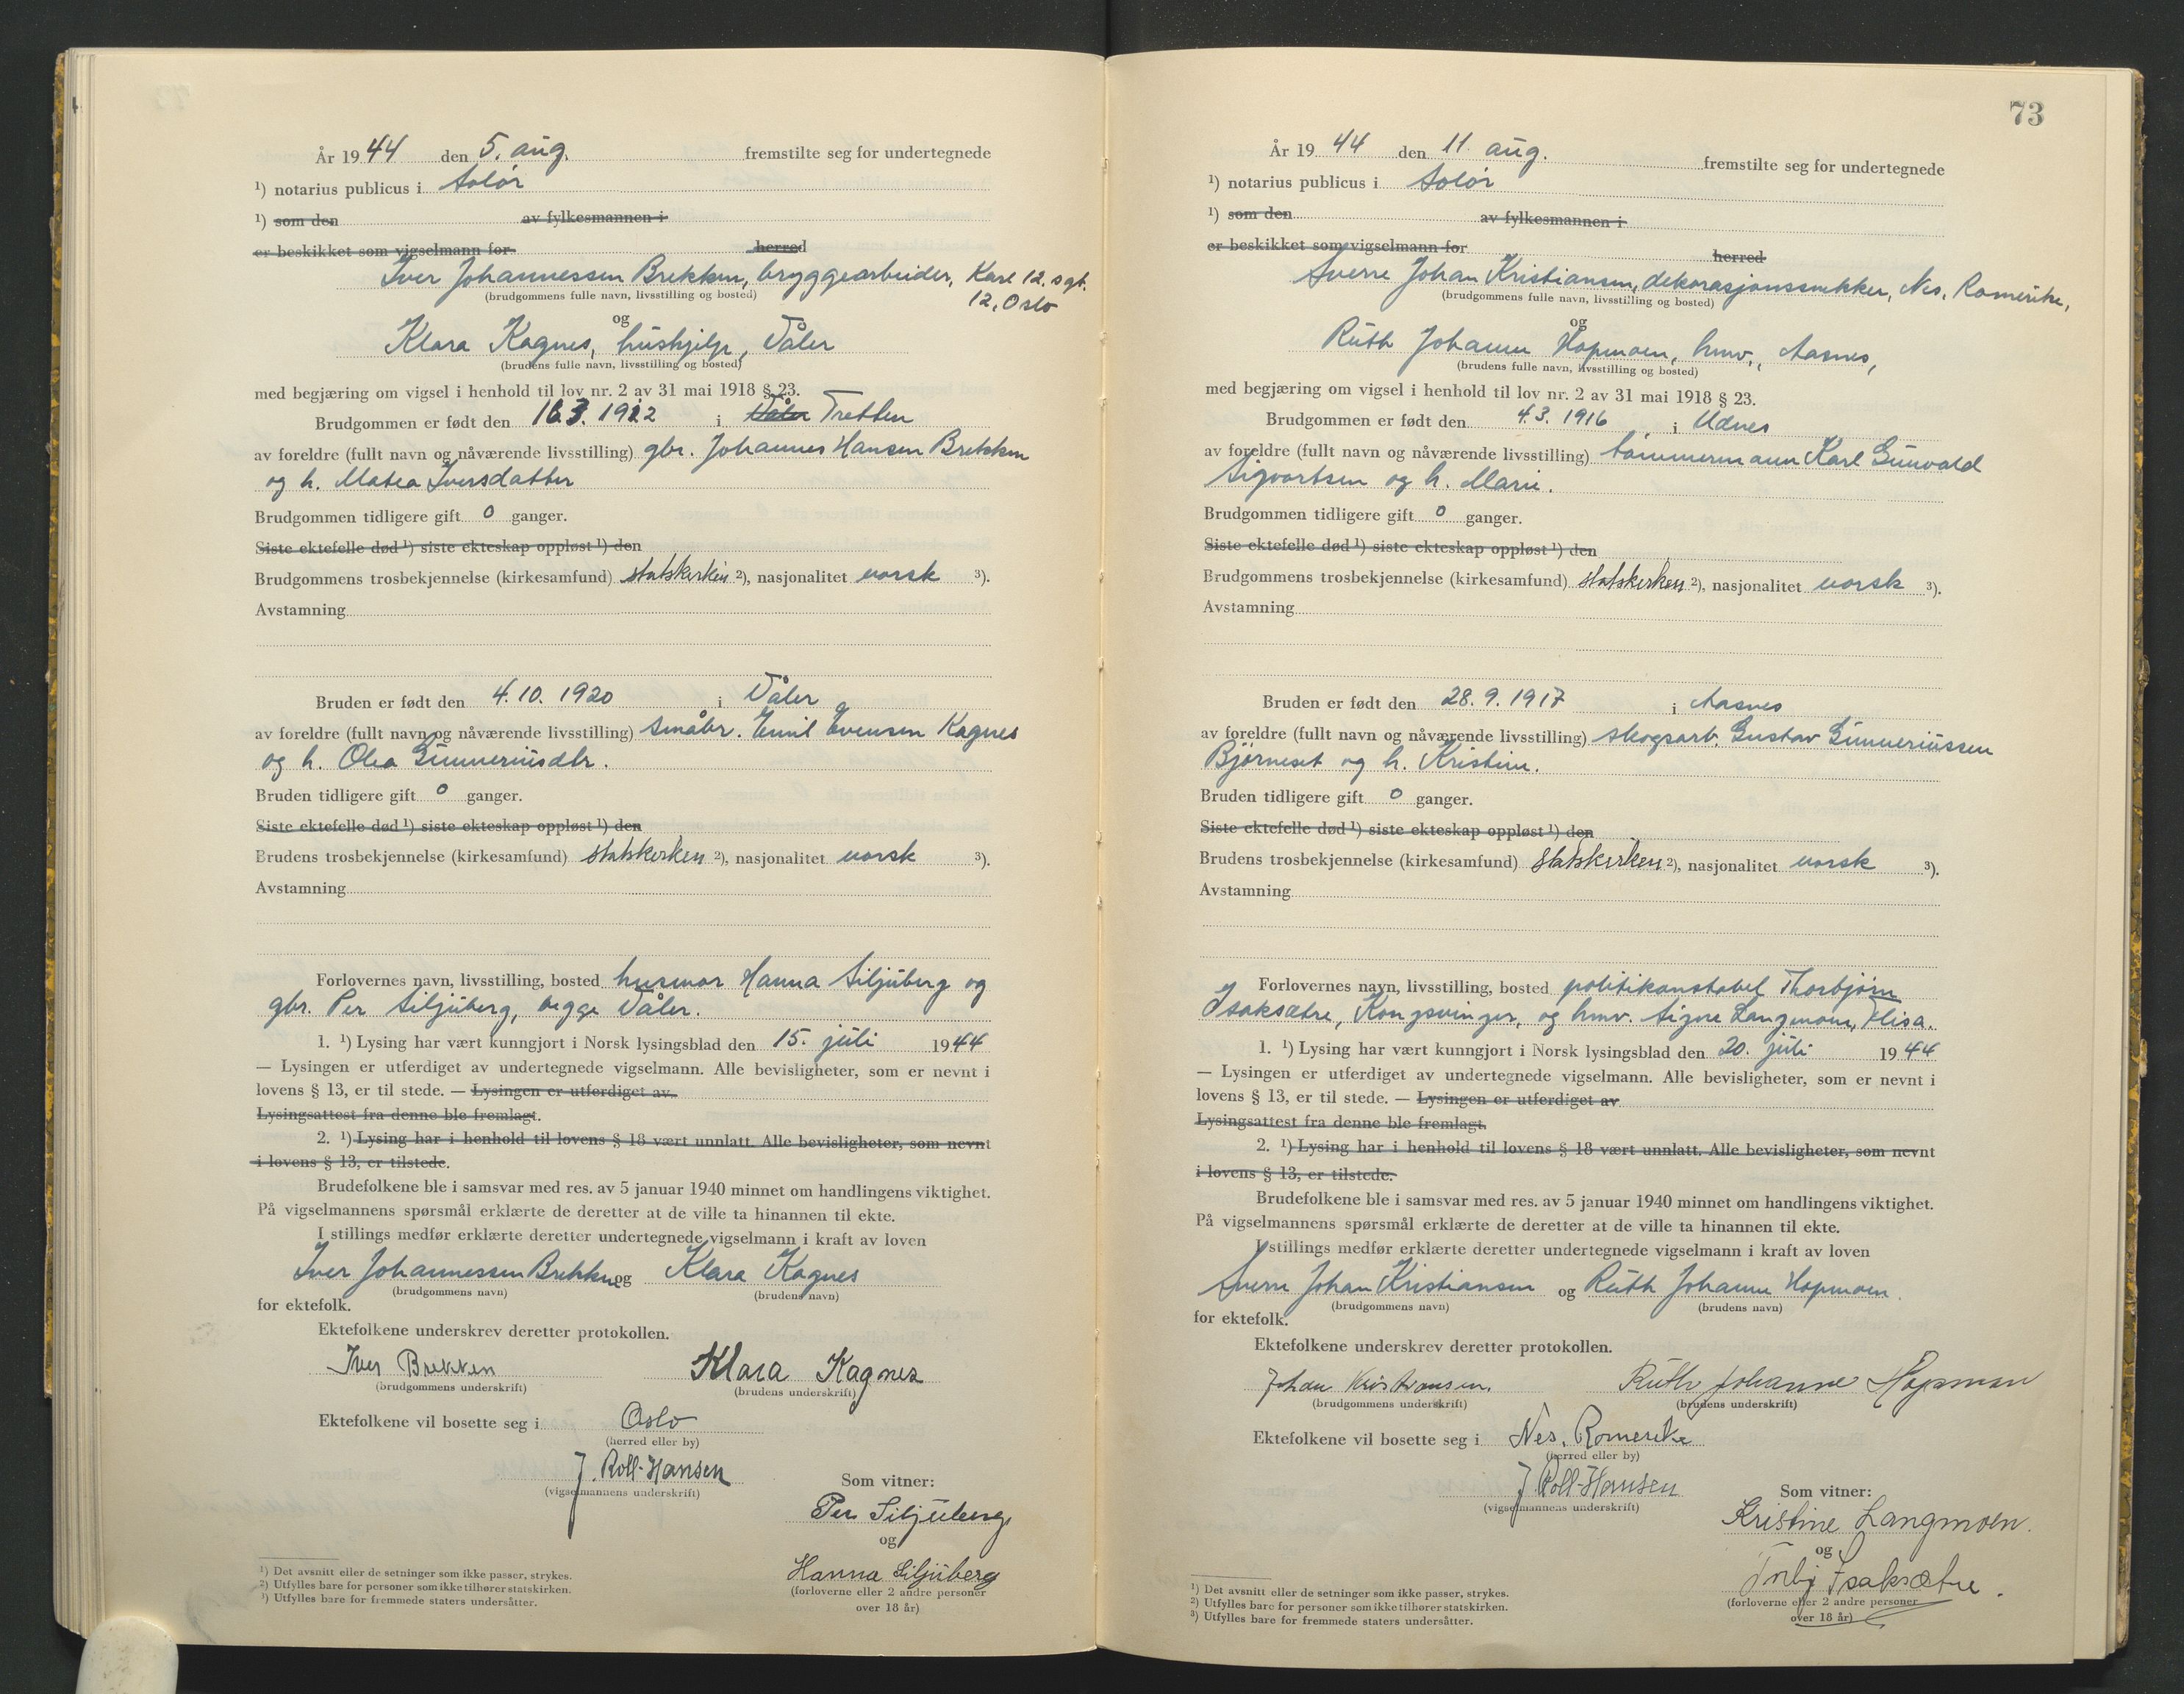 År 1944 den 5. aug. fremstilte seg for undertegnede
¹) notarius publicus i Solør
¹) som den av fylkesmannen i
er beskikket som vigselmann for herred
Iver Johannessen Brekken, bryggearbeider, Karl 12. sgt.
12, Oslo
(brudgommens fulle navn, livsstilling og bosted)
og
Klara Kagnes, hushjelp, Våler
(brudens fulle navn, livsstilling og bosted)
med begjæring om vigsel i henhold til lov nr. 2 av 31 mai 1918 § 23.
Brudgommen er født den 16.3. 1922 i Våler Tretten
av foreldre (fullt navn og nåværende livsstilling) gbr. Johannes Hansen Brekken
og h. Matea Iversdatter
Brudgommen tidligere gift 0 ganger.
Siste ektefelle død ¹) siste ekteskap oppløst ¹) den
Brudgommens trosbekjennelse (kirkesamfund) statskirken ²), nasjonalitet norsk ³).
Avstamning
Bruden er født den 4.10. 1920 i Våler
av foreldre (fullt navn og nåværende livsstilling) småbr. Emil Evensen Kagnes
og h. Olea Gunneriusdtr.
Bruden tidligere gift 0 ganger.
Siste ektefelle død ¹) siste ekteskap oppløst ¹) den
Brudens trosbekjennelse (kirkesamfund) statskirken ²), nasjonalitet norsk ³).
Avstamning
Forlovernes navn, livsstilling, bosted husmor Hanna Siljuberg og
gbr. Per Siljuberg, begge Våler.
1. ¹) Lysing har vært kunngjort i Norsk lysingsblad den 15. juli 1944
— Lysingen er utferdiget av undertegnede vigselmann. Alle bevisligheter, som er nevnt i
lovens § 13, er til stede. — Lysingen er utferdiget av
Lysingsattest fra denne ble fremlagt.
2. ¹) Lysing har i henhold til lovens § 18 vært unnlatt. Alle bevisligheter, som nevnt
i lovens § 13, er tilstede.
Brudefolkene ble i samsvar med res. av 5 januar 1940 minnet om handlingens viktighet.
På vigselmannens spørsmål erklærte de deretter at de ville ta hinannen til ekte.
I stillings medfør erklærte deretter undertegnede vigselmann i kraft av loven
Iver Johannessen Brekken og Klara Kagnes
(brudgommens navn) (brudens navn)
for ektefolk.
Ektefolkene underskrev deretter protokollen.
Iver Brekken Klara Kagnes
(brudgommens underskrift) (brudens underskrift)
Ektefolkene vil bosette seg i Oslo
(herred eller by)
J. Roll-Hansen
(vigselmannens underskrift)
Som vitner:
Per Siljuberg
og
Hanna Siljuberg
(forloverne eller 2 andre personer
over 18 år)
¹) Det avsnitt eller de setninger som ikke passer, strykes.
²) Utfylles bare for personer som ikke tilhører statskirken.
³) Utfylles bare for fremmede staters undersåtter.
73
År 1944 den 11. aug. fremstilte seg for undertegnede
¹) notarius publicus i Solør
¹) som den av fylkesmannen i
er beskikket som vigselmann for herred
Sverre Johan Kristiansen, dekorasjonssnekker, Nes, Romerike,
(brudgommens fulle navn, livsstilling og bosted)
og
Ruth Johanne Hopmoen, hmv., Aasnes,
(brudens fulle navn, livsstilling og bosted)
med begjæring om vigsel i henhold til lov nr. 2 av 31 mai 1918 § 23.
Brudgommen er født den 4.3. 1916 i Udnes
av foreldre (fullt navn og nåværende livsstilling) tømmermann Karl Gunvald
Sigvartsen og h. Marie.
Brudgommen tidligere gift 0 ganger.
Siste ektefelle død ¹) siste ekteskap oppløst ¹) den
Brudgommens trosbekjennelse (kirkesamfund) statskirken ²), nasjonalitet norsk ³).
Avstamning
Bruden er født den 28.9. 1917 i Aasnes
av foreldre (fullt navn og nåværende livsstilling) skogsarb. Gustav Gunneriussen
Bjørneset og h. Kristine.
Bruden tidligere gift 0 ganger.
Siste ektefelle død ¹) siste ekteskap oppløst ¹) den
Brudens trosbekjennelse (kirkesamfund) statskirken ²), nasjonalitet norsk ³).
Avstamning
Forlovernes navn, livsstilling, bosted politikonstabel Thorbjørn
Isaksætre, Kongsvinger, og hmv. Signe Langmoen, Flisa.
1. ¹) Lysing har vært kunngjort i Norsk lysingsblad den 20. juli 1944
— Lysingen er utferdiget av undertegnede vigselmann. Alle bevisligheter, som er nevnt i
lovens § 13, er til stede. — Lysingen er utferdiget av
Lysingsattest fra denne ble fremlagt.
2. ¹) Lysing har i henhold til lovens § 18 vært unnlatt. Alle bevisligheter, som nevnt
i lovens § 13, er tilstede.
Brudefolkene ble i samsvar med res. av 5 januar 1940 minnet om handlingens viktighet.
På vigselmannens spørsmål erklærte de deretter at de ville ta hinannen til ekte.
I stillings medfør erklærte deretter undertegnede vigselmann i kraft av loven
Sverre Johan Kristiansen og Ruth Johanne Hopmoen.
(brudgommens navn) (brudens navn)
for ektefolk.
Ektefolkene underskrev deretter protokollen.
Johan Kristiansen. Ruth Johanne Hopmoen
(brudgommens underskrift) (brudens underskrift)
Ektefolkene vil bosette seg i Nes, Romerike
(herred eller by)
J Roll-Hansen
(vigselmannens underskrift)
Som vitner:
Kristine Langmoen.
og
Isaksætre.
(forloverne eller 2 andre personer
over 18 år)
¹) Det avsnitt eller de setninger som ikke passer, strykes.
²) Utfylles bare for personer som ikke tilhører statskirken.
³) Utfylles bare for fremmede staters undersåtter.